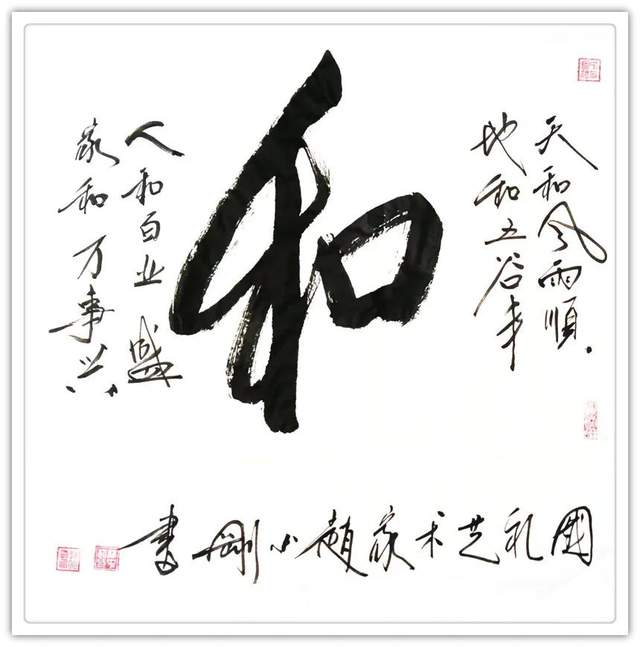 天和风雨順
地和五谷丰
和
人和百业盛
家和万事兴
國礼艺术家小剛書